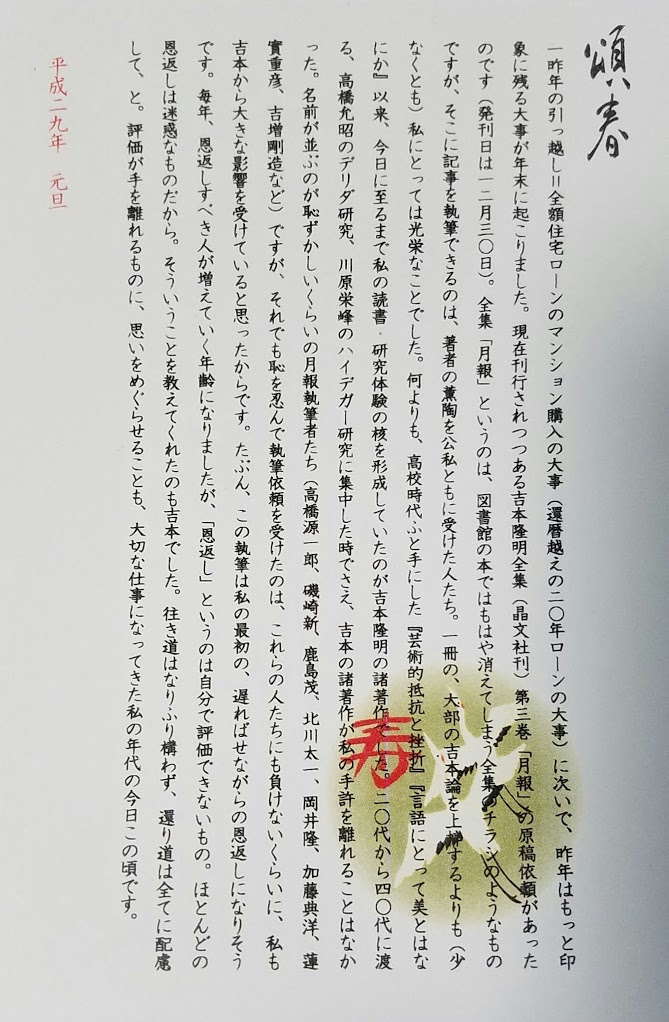 頌春
一昨年の引っ越し＝全額住宅ローンのマンション購入の大事（還暦越えの二〇年ローンの大事）に次いで、昨年はもっと印
象に残る大事が年末に起こりました。現在刊行されつつある吉本隆明全集（晶文社刊）第三巻「月報」の原稿依頼があった
のです（発刊日は一二月三〇日）。全集「月報」というのは、図書館の本ではもはや消えてしまう全集のチラシのようなもの
ですが、そこに記事を執筆できるのは、著者の薫陶を公私ともに受けた人たち。一冊の、大部の吉本論を上梓するよりも（少
なくとも）私にとっては光栄なことでした。何よりも、高校時代ふと手にした『芸術的抵抗と挫折』『言語にとって美とはな
にか』以来、今日に至るまで私の読書・研究体験の核を形成していたのが吉本隆明の諸著作でした。二〇代から四〇代に渡
る、高橋允昭のデリダ研究、川原栄峰のハイデガー研究に集中した時でさえ、吉本の諸著作が私の手許を離れることはなか
った。名前が並ぶのが恥ずかしいくらいの月報執筆者たち（高橋源一郎、磯崎新、鹿島茂、北川太一、岡井隆、加藤典洋、蓮
實重彦、吉増剛造など）ですが、それでも恥を忍んで執筆依頼を受けたのは、これらの人たちにも負けないくらいに、私も
吉本から大きな影響を受けていると思ったからです。たぶん、この執筆は私の最初の、遅ればせながらの恩返しになりそう
です。毎年、恩返しすべき人が増えていく年齢になりましたが、「恩返し」というのは自分で評価できないもの。ほとんどの
恩返しは迷惑なものだから。そういうことを教えてくれたのも吉本でした。往き道はなりふり構わず、還り道は全てに配慮
して、と。評価が手を離れるものに、思いをめぐらせることも、大切な仕事になってきた私の年代の今日この頃です。
平成二九年　元旦
寿